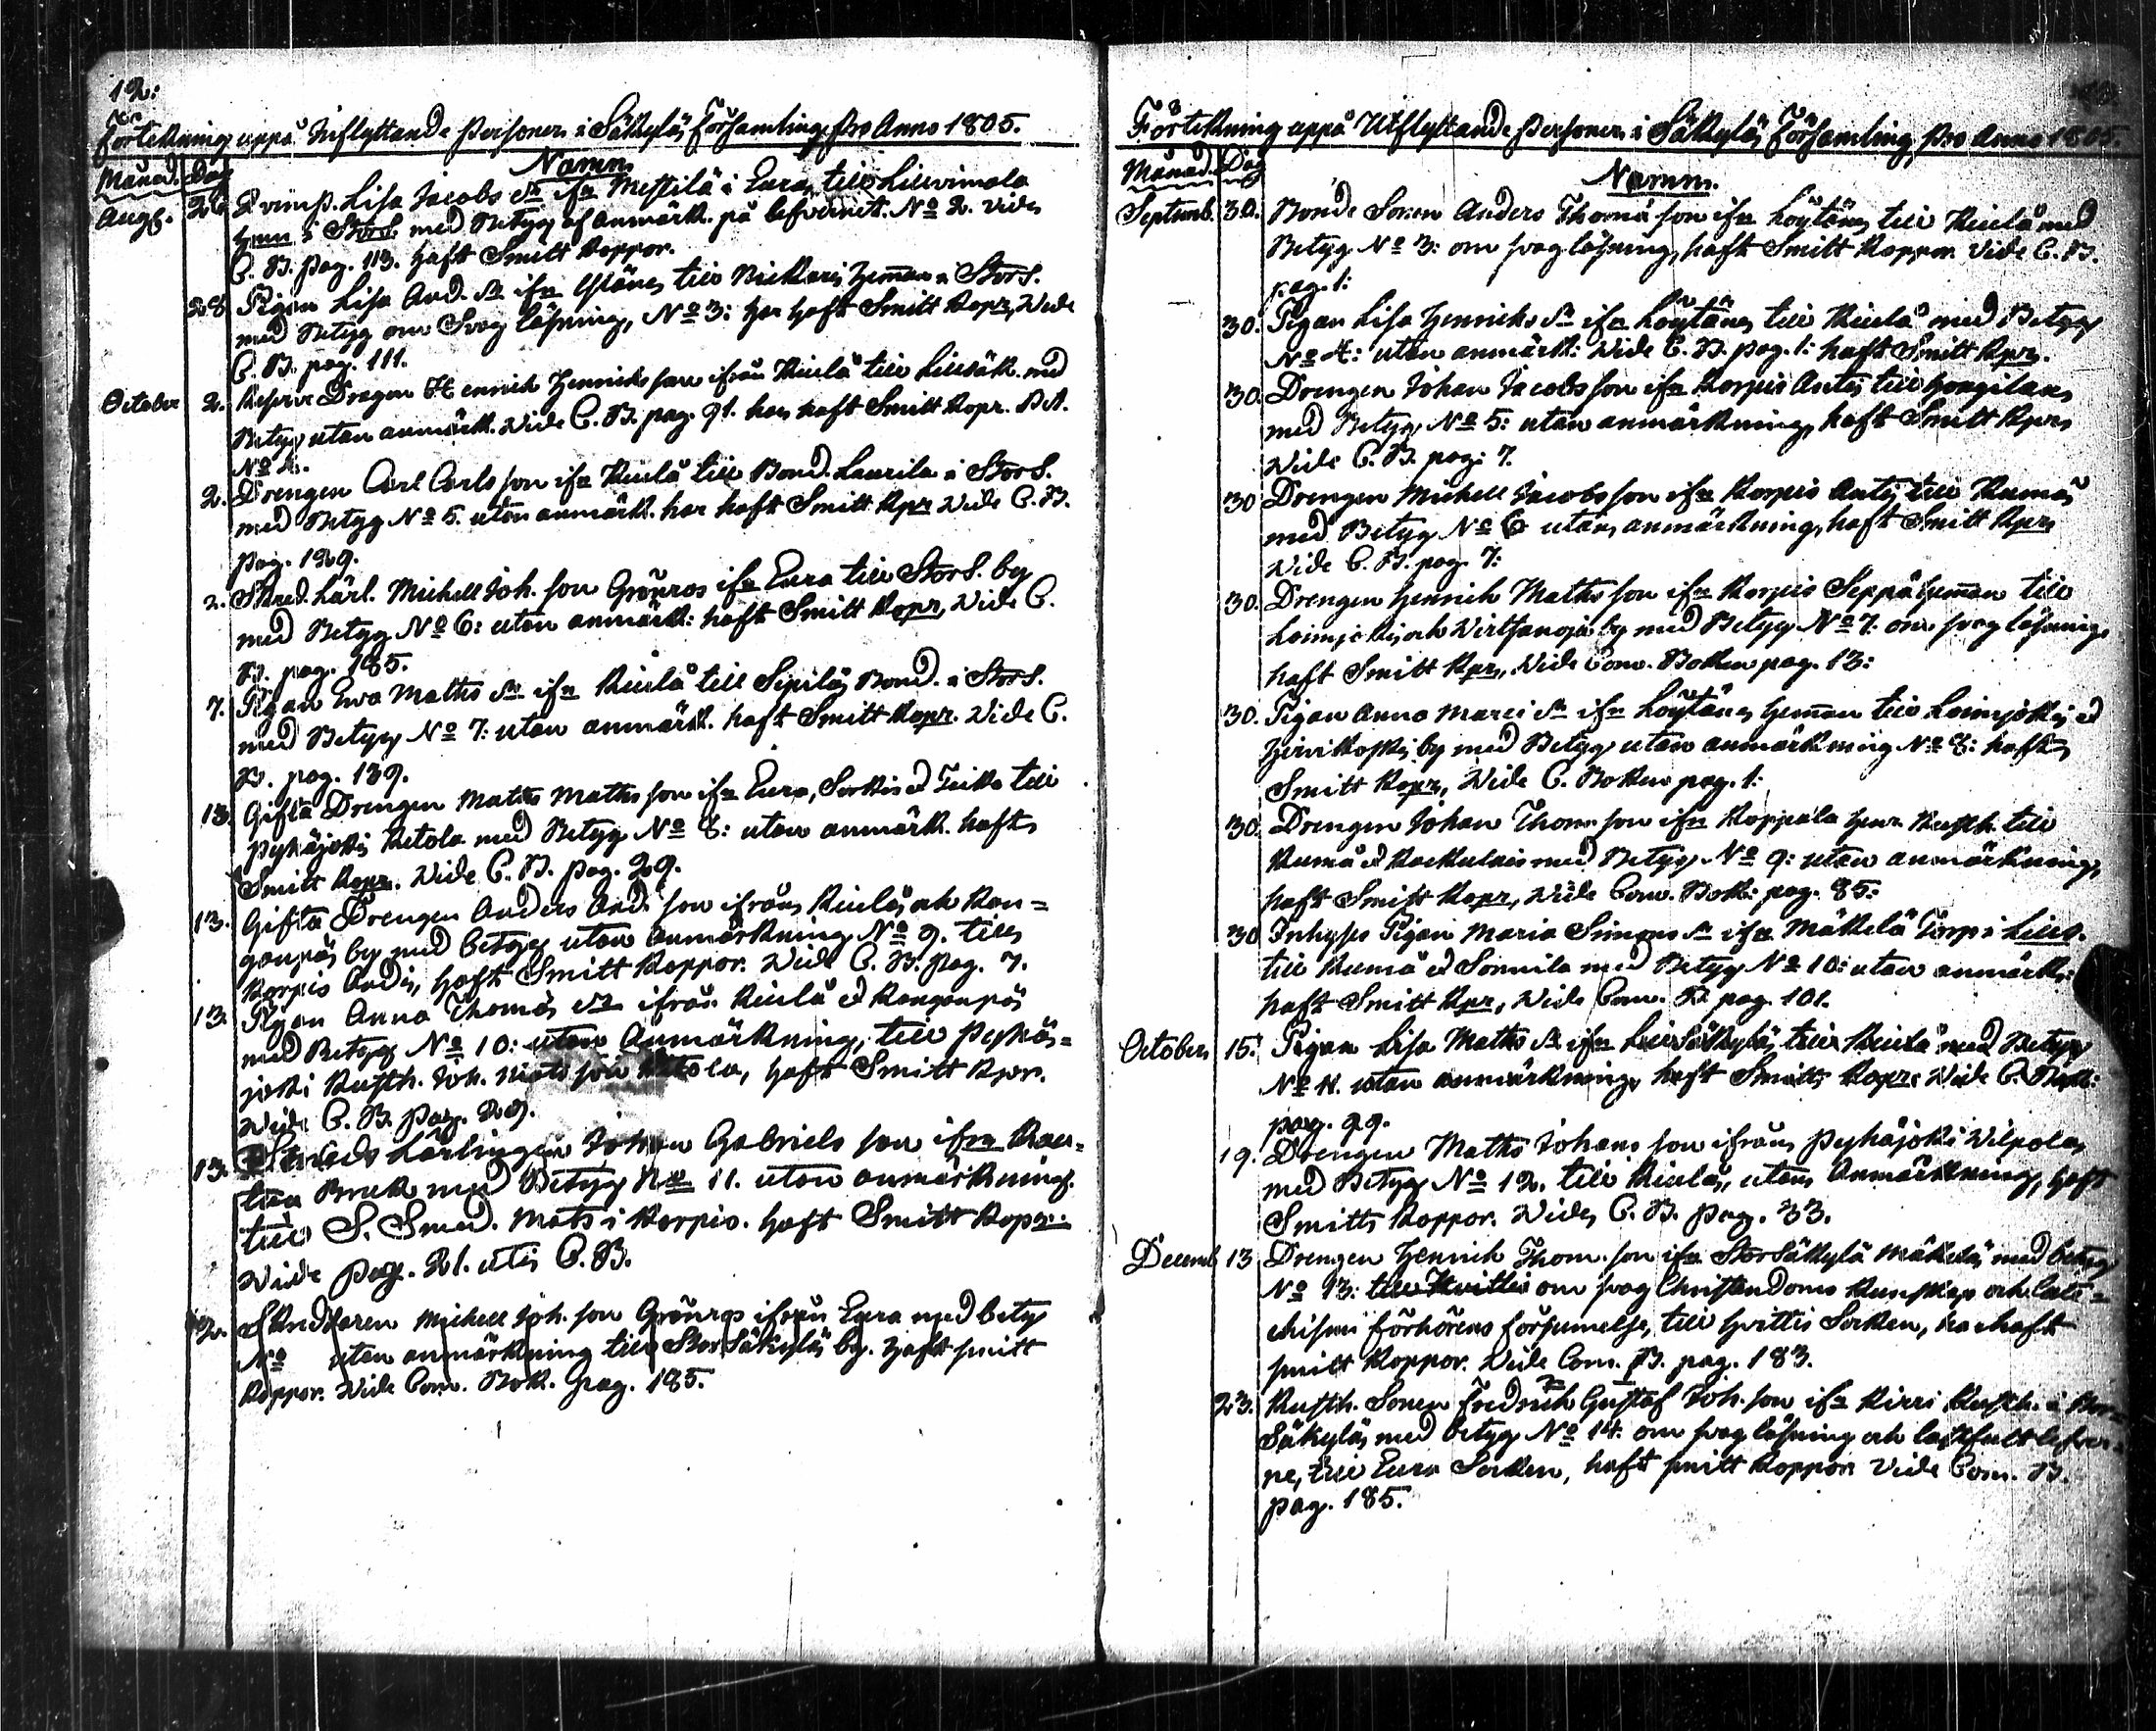 12:
Förtekning uppå Inflyttande Personer i Säkylä Församling pro Anno 1805.
Månad. Dag Namn
Aug. 26 Qvinsp. Lisa Jacobs dr ifn Mestilä i Eura, till Lillvimala
i StorS. med Betyg af anmärk. på lefvernet. No 2. Vide
C. B. pag. 113. haft Smitt Koppor.
28 Pigan Lisa And. dr ifn till Heman i StorS.
med Betyg om Svag läsning, No 3: har haft Smitt Kopr, Vide
C. B. pag. 111.
October 2. Reserve Dragon Henrich Henrichs son ifrån Kiula till Lillsäk. med
Betyg utan anmärk. Vide C. B. pag. 91. har haft Smitt Kopr. Bet.
No 4.
2. Drengen Carl Carls son ifn Kiula till Bond. Laurila i StorS.
med Betyg No 5. utan anmärk. har haft Smitt Kpr Vide C. B.
pag. 139.
2. Skred. Lärl. Michell Joh. son Grönros ifn Eura till StorS. by
med Betyg No 6: utan anmärk: haft Smitt Kopr, Vide C.
B. pag. 185.
7. Pigan Ewa Maths dr ifn Kiula till Sipilä Bond. i StorS.
med Betyg No 7: utan anmärk. haft Smitt Kopr. Vide C.
B. pag. 139.
13. Gifta Drengen Maths Maths son ifn Eura, Sorkis till
Pyhäjoki Ketola med Betyg No 8: utan anmärk. haft
Smitt Kopr. Vide C. B. pag. 29.
13. Gifta Drengen Anders And. son ifrån Kiula och Kan=
ganpä by med betyg utan Anmärkning No 9. till
Korpis haft Smitt Koppor. Vide C. B. pag. 7.
13. Pigan Anna Thomas dr ifrån Kiula Kanganpä
med Betyg No 10: utan Anmärkning, till Pyhä=
joki Rusth. Joh. Mats son Ketola, haft Smitt Kpr.
Vide C. B. pag. 29.
13. Lärlingen Johan Gabriels son ifrn Kau=
tua Bruk med Betyg No 11. utan anmärkning.
till S. Smed. Mats i Korpis. haft Smitt Kopr.
Vide pag. 21. uti C. B.
Skreddaren Michell Joh. son Grönros ifrån Eura med betyg
No utan anmärkning till Stor Säkylä by. haft smitt
Koppor. Vide Com. Bok. pag. 185.
Förtekning uppå Utflyttande Personer i Säkylä Församling pro Anno 1805.
Månad. Dag Namn.
Septemb. 30. Bonde Sonen Anders Thomæ son ifn Löytäne till Kiula med
Betyg No 3: om svag läsning, haft Smitt Koppor. Vide C. B.
pag. 1:
30. Pigan Lisa Henrichs dr ifn Löytäne till Kiula med Betyg
No 4: utan anmärk: Vide C. B. pag. 1: haft Smitt Kpr.
30. Drengen Johan Jacobs son ifn Korpis Anti till Hongilax
med Betyg No 5: utan anmärkning, haft Smitt Kpr
Vide C. B. pag. 7.
30 Drengen Michell Jacobs son ifn Korpis Anti till Kumo
med Betyg No 6 utan anmärkning, haft Smitt Kpr
Vide C. B. pag. 7:
30. Drengen Henrich Maths son ifn Korpis Seppä Heman till
Loimjoki och Virtsanoja by med Betyg No 7: om svag läsning
haft Smitt Kpr, Vide Com. Boken pag. 13:
30. Pigan Anna Marci dr ifn Löytäne Heman till Loimjoki
Hirvikoski by med Betyg utan anmärkning No 8: haft
Smitt Kopr, Vide C. Boken pag. 1:
30. Drengen Johan Thom. son ifn Koppala Rusth. till
Kumo med Betyg No 9: utan anmärkning,
haft Smitt Kopr, Vide Com. Bok: pag. 85:
30 Inhyses Pigan Maria Simons dr ifn Mäkelä Torp i LillS.
till Kumo Sonnila med Betyg No 10: utan anmärk:
haft Smitt Kpr, Vide Com. B. pag. 101.
October 15. Pigan Lisa Maths dr ifn Lill Säkylä till Kiula med Betyg
No 11. utan anmärkning, haft Smitt Kopr: Vide C. Bok:
pag. 99.
19. Drengen Maths Johans son ifrån Pyhäjoki Vilpola
med Betyg No 12. till Kiula, utan Anmärkning, haft
Smitt Koppor. Vide C. B. pag. 33.
Decemb. 13 Drengen Henrich Thom. son ifn Stor Säkylä Mäkelä med betyg
No 13: till Hvittis om svag Christendoms Kunskap och Cate=
chismi förhörens försumelse, till Hvittis Socken, har haft
smitt Koppor. Vide Com. B. pag. 183.
23. Rusth. Sonen Fredrich Gustaf Joh. son ifn Pirri Rusth. i Stor=
Säkylä med betyg No 14. om svag läsning och lastfult lefver=
ne, till Eura Socken, haft smitt Koppor. Vide Com. B.
pag. 185.